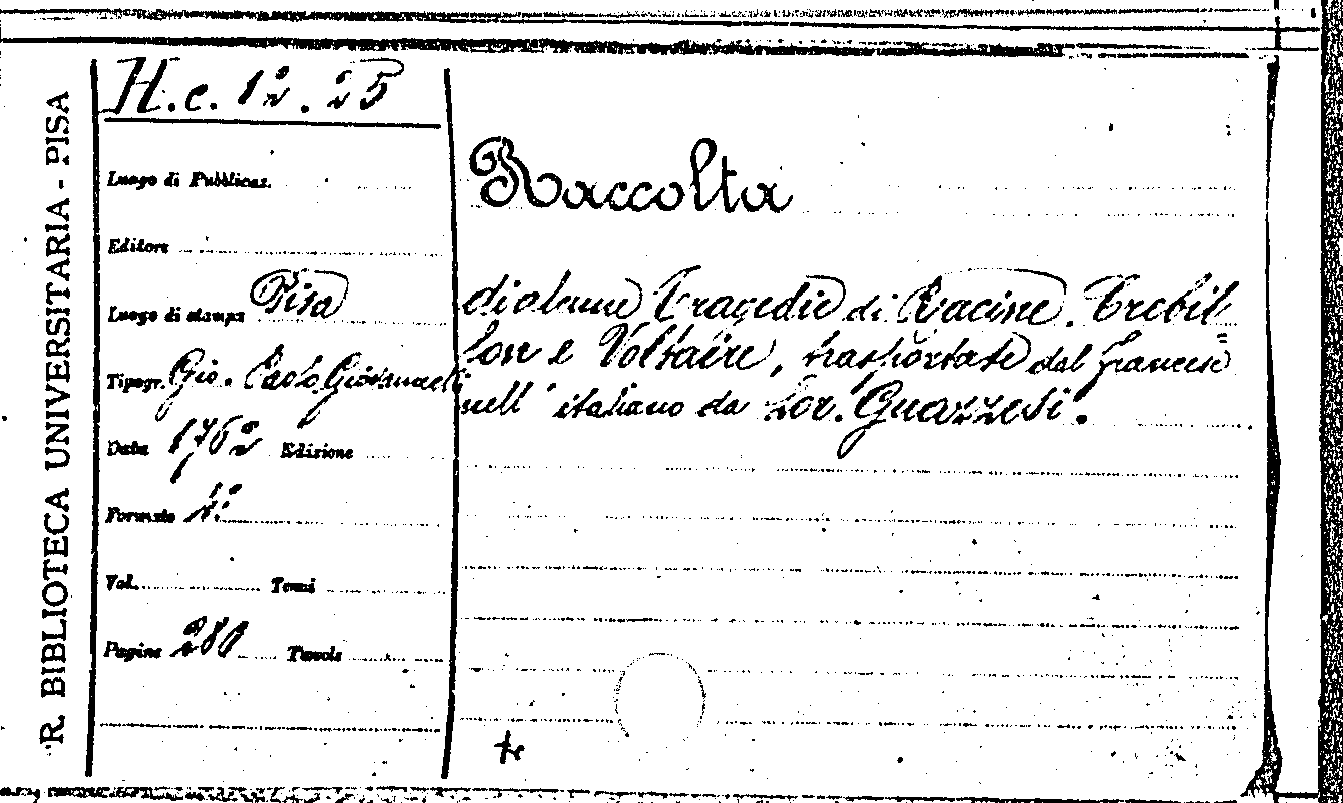 R. BIBLIOTECA UNIVERSITARIA - PISA
H.c. 12. 25
Luogo di Pubblicaz.
Editore
Luogo di stampa Pisa
Tipogr. Gio. Paolo Giovannelli
Data 1762 Edizione
Formato 4°
Vol. Tomi
Pagine 280 Tavole
Raccolta
di alcune Tragedie di Racine, Crebil=
lon e Voltaire, trasportate dal francese
nell' italiano da Lor. Guazzesi.